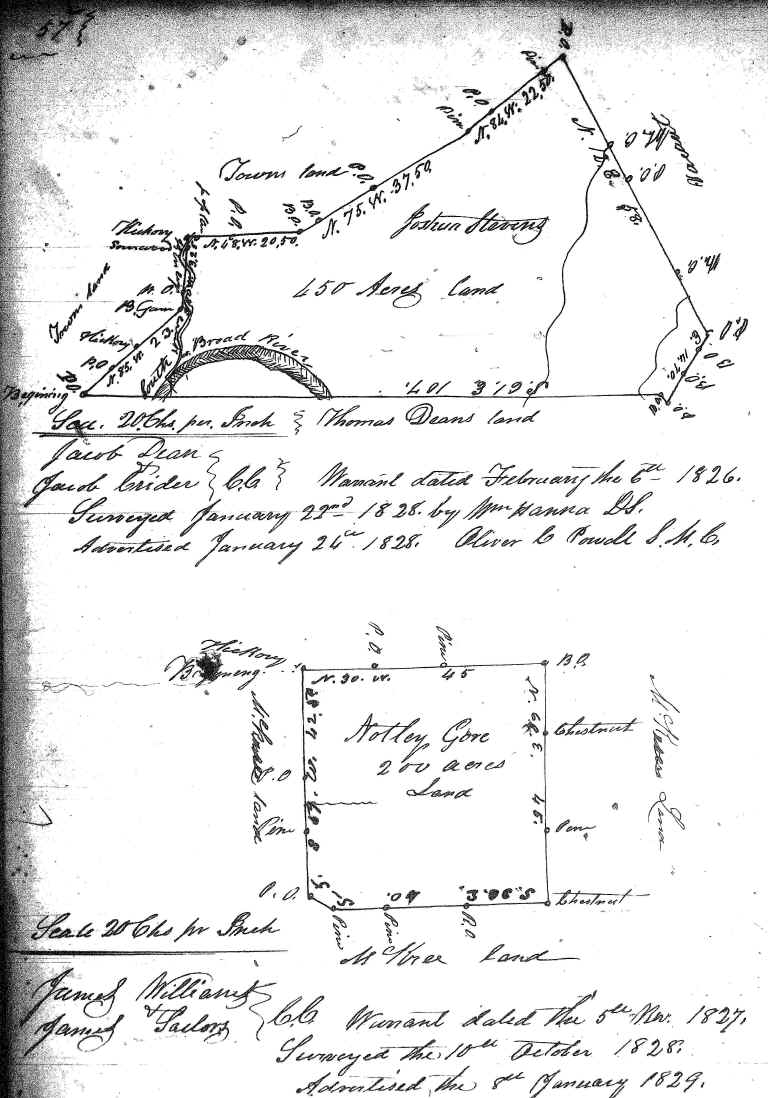 57
P.O.
Pine
P.O.
Pine
N. 84. W. 22,50.
Vacant
Towns land
P.O.
N. 75. W. 37,50.
Joshua Stevens
B.O.
B.O.
P.O.
Hickory
Sourwood
N. 48, W. 20,50.
450 Acres land
Towns land
B. Gum
Hickory
P.O
N. 85, W. 23.
South
Broad River
Begining
P.O.
S. 61. E. 107.
Scal. 20 Chs. per. Inch
Thomas Deans land
Jacob Dean
Jacob Crider } C.C } Warrant dated February the 6th 1826.
Surveyed January 22nd 1828. by Wm Hanna DS.
Advertised January 24th 1828. Oliver C Powell S. M. C.
Hickory
Begineng.
P.O.
Pine
B.O.
N. 30. W. 45
Notley Gore
200 acres
Land
Chestnut
45.
P.O
Pine
Pine
P.O.
S. 30. E. 40.
Chestnut
Pine
Pine
P.O
Scale 20 Chs pr Inch
McKree land
James Williams
& James Sailors } C.C Warrant dated the 5th Nov. 1827.
Surveyed the 10th October 1828.
Advertised the 8th January 1829.